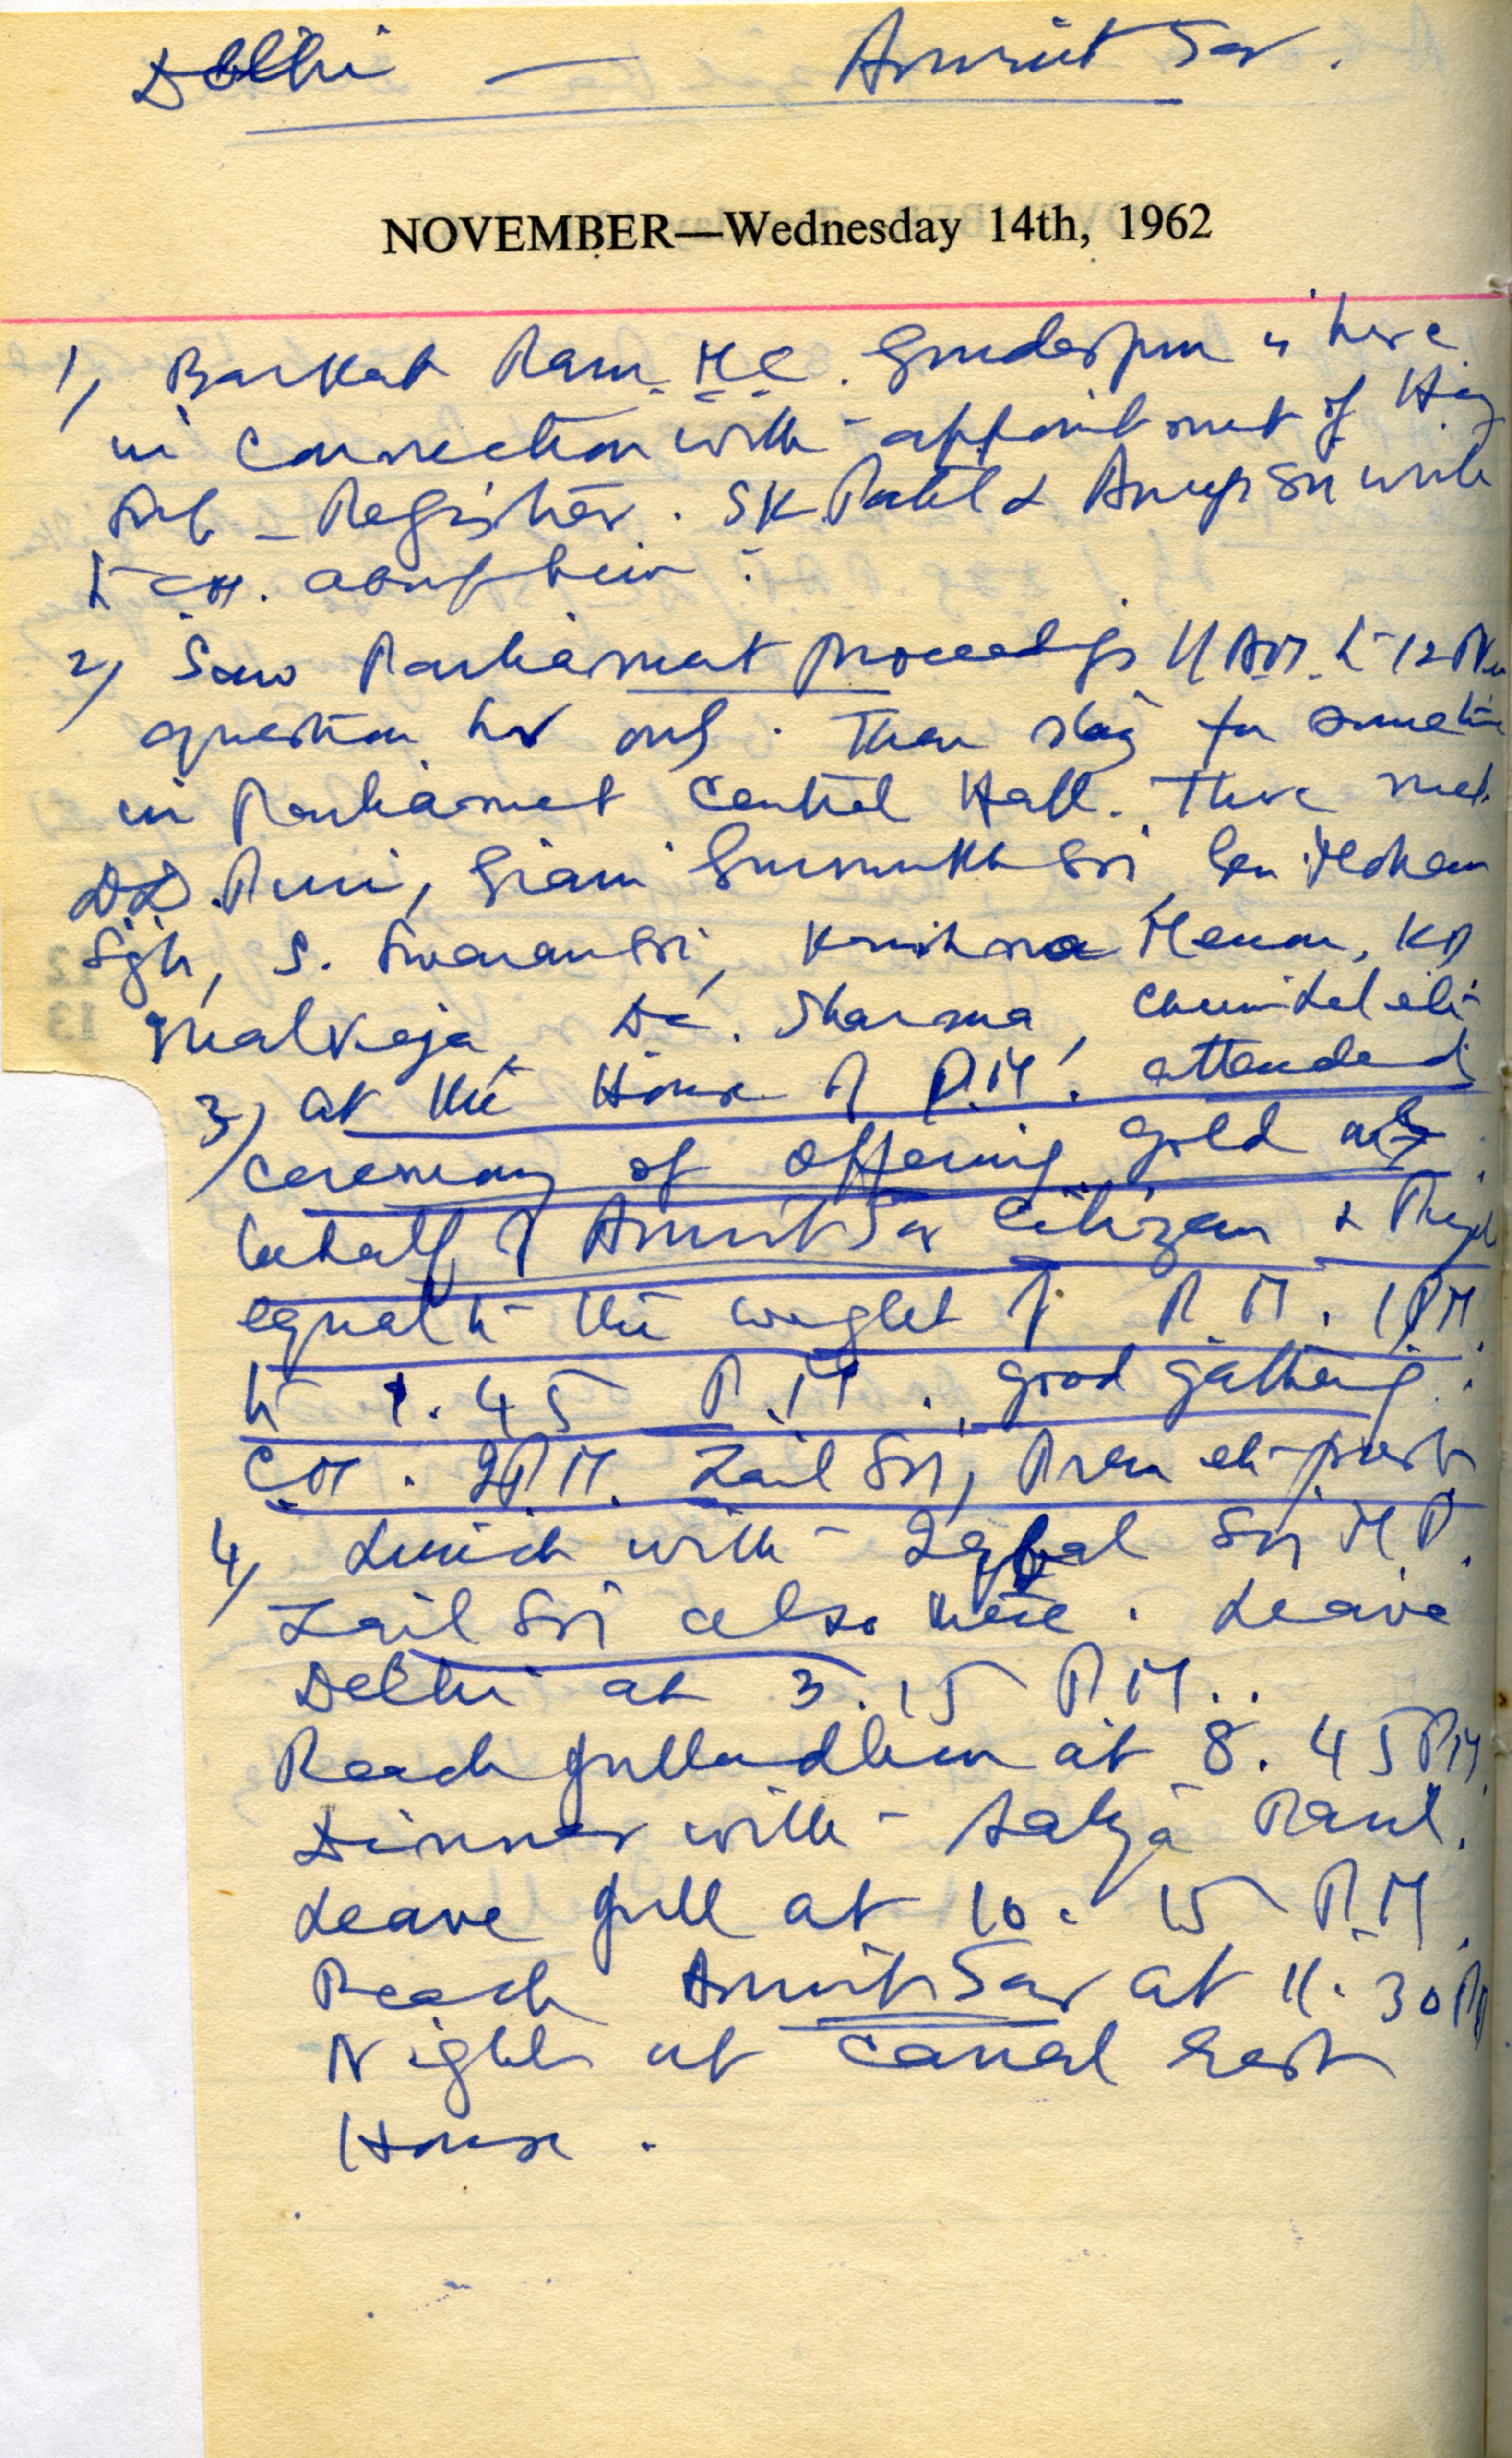 Delhi — Amritsar.
NOVEMBER—Wednesday 14th, 1962
1) Barkat Ram M.C. Gurdaspur is here
in connection with appointment of
Sub-Register. SK Patil & Anup Sn write
to CM. about him.
2) Saw Parliament proceedings 11 AM. to 12
question hr only. Then stay for sometime
in Parliament Central Hall. There met
DD. Puri, Giani Gurmukh Sn, Gen Mohan
Sgh, S. Swaran Sn, Krishna Menon, KD
Malviaja, Dc. Sharma, Chunilal etc
3) at the House of P.M. attended
ceremony of offering gold
behalf of Amritsar Citizen &
equal to the weight of P.M. 1 PM
to 1.45 P.M. good gathering.
CM. Zail Sn, Prem etc present
4) Lunch with Iqbal Sn M.P.
Zail Sn also there. Leave
Delhi at 3.15 P.M..
Reach Jullundhur at 8.45 PM
Dinner with Satya Paul.
Leave Jull at 10.15 P.M.
Reach Amritsar at 11.30 PM
Night at Canal Rest
House.